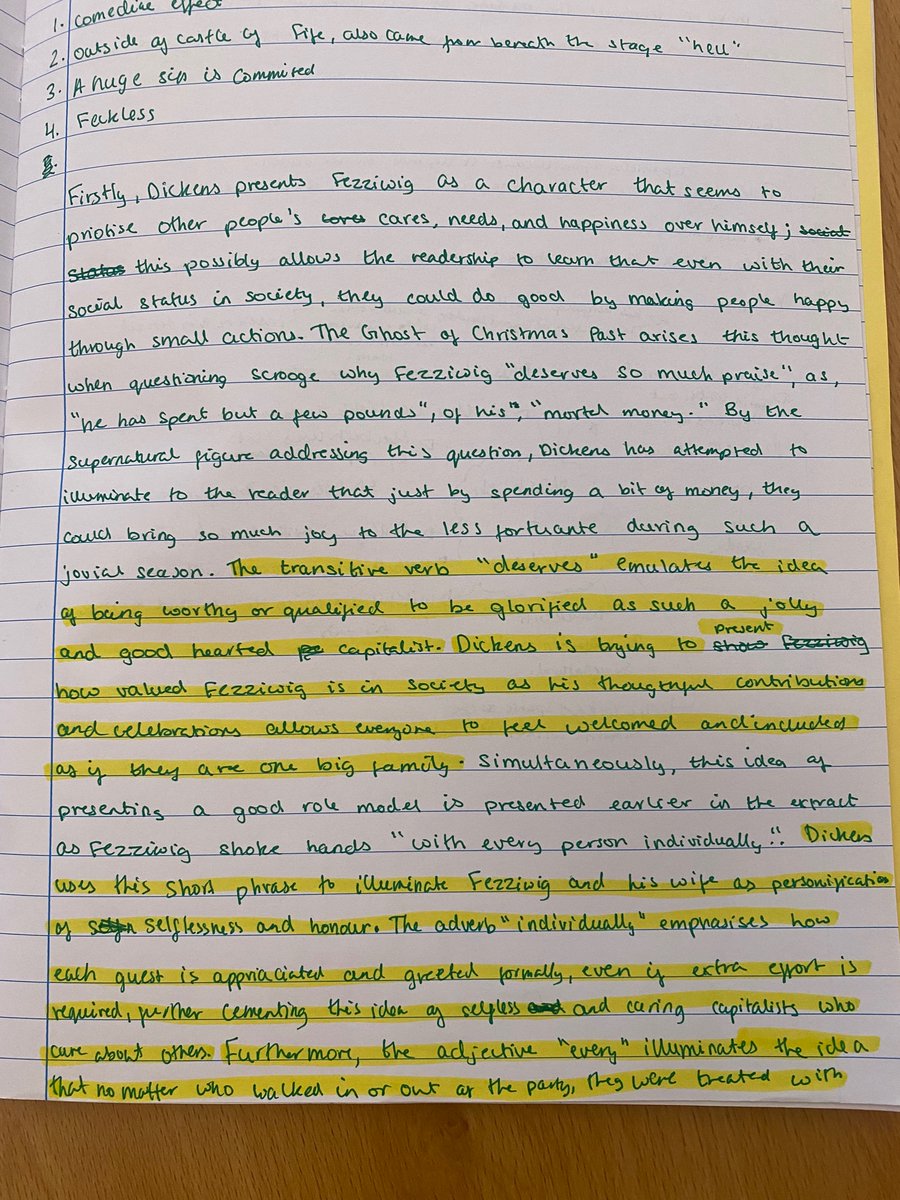 1. comedic effect
2. outside of castle of Fife, also came from beneath the stage "hell"
3. A huge sin is commited
4. Feckless
Firstly, Dickens presents Fezziwig as a character that seems to
priotise other people's cares, needs, and happiness over himself; social
status this possibly allows the readership to learn that even with their
social status in society, they could do good by making people happy
through small actions. The Ghost of Christmas Past arises this thought
when questioning scrooge why Fezziwig "deserves so much praise", as,
"he has spent but a few pounds", of his", "mortal money." By the
supernatural figure addressing this question, Dickens has attempted to
illuminate to the reader that just by spending a bit of money, they
could bring so much joy to the less fortuante during such a
jovial season. The transitive verb "deserves" emulates the idea
of being worthy or qualified to be glorified as such a jolly
and good hearted capitalist. Dickens is trying to show Fezziwig present
how valued Fezziwig is in society as his thougthful contributions
and celebrations allows everyone to feel welcomed and included
as if they are one big family. Simultaneously, this idea of
presenting a good role model is presented earlier in the extract
as Fezziwig shoke hands "with every person individually". Dickens
uses this short phrase to illuminate Fezziwig and his wife as personification
of selflessness and honour. The adverb "individually" emphasises how
each guest is appriaciated and greeted formally, even if extra effort is
required, further cementing this idea of selfless and and caring capitalists who
care about others. Furthermore, the adjective "every" illuminates the idea
that no matter who walked in or out at the party, they were treated with